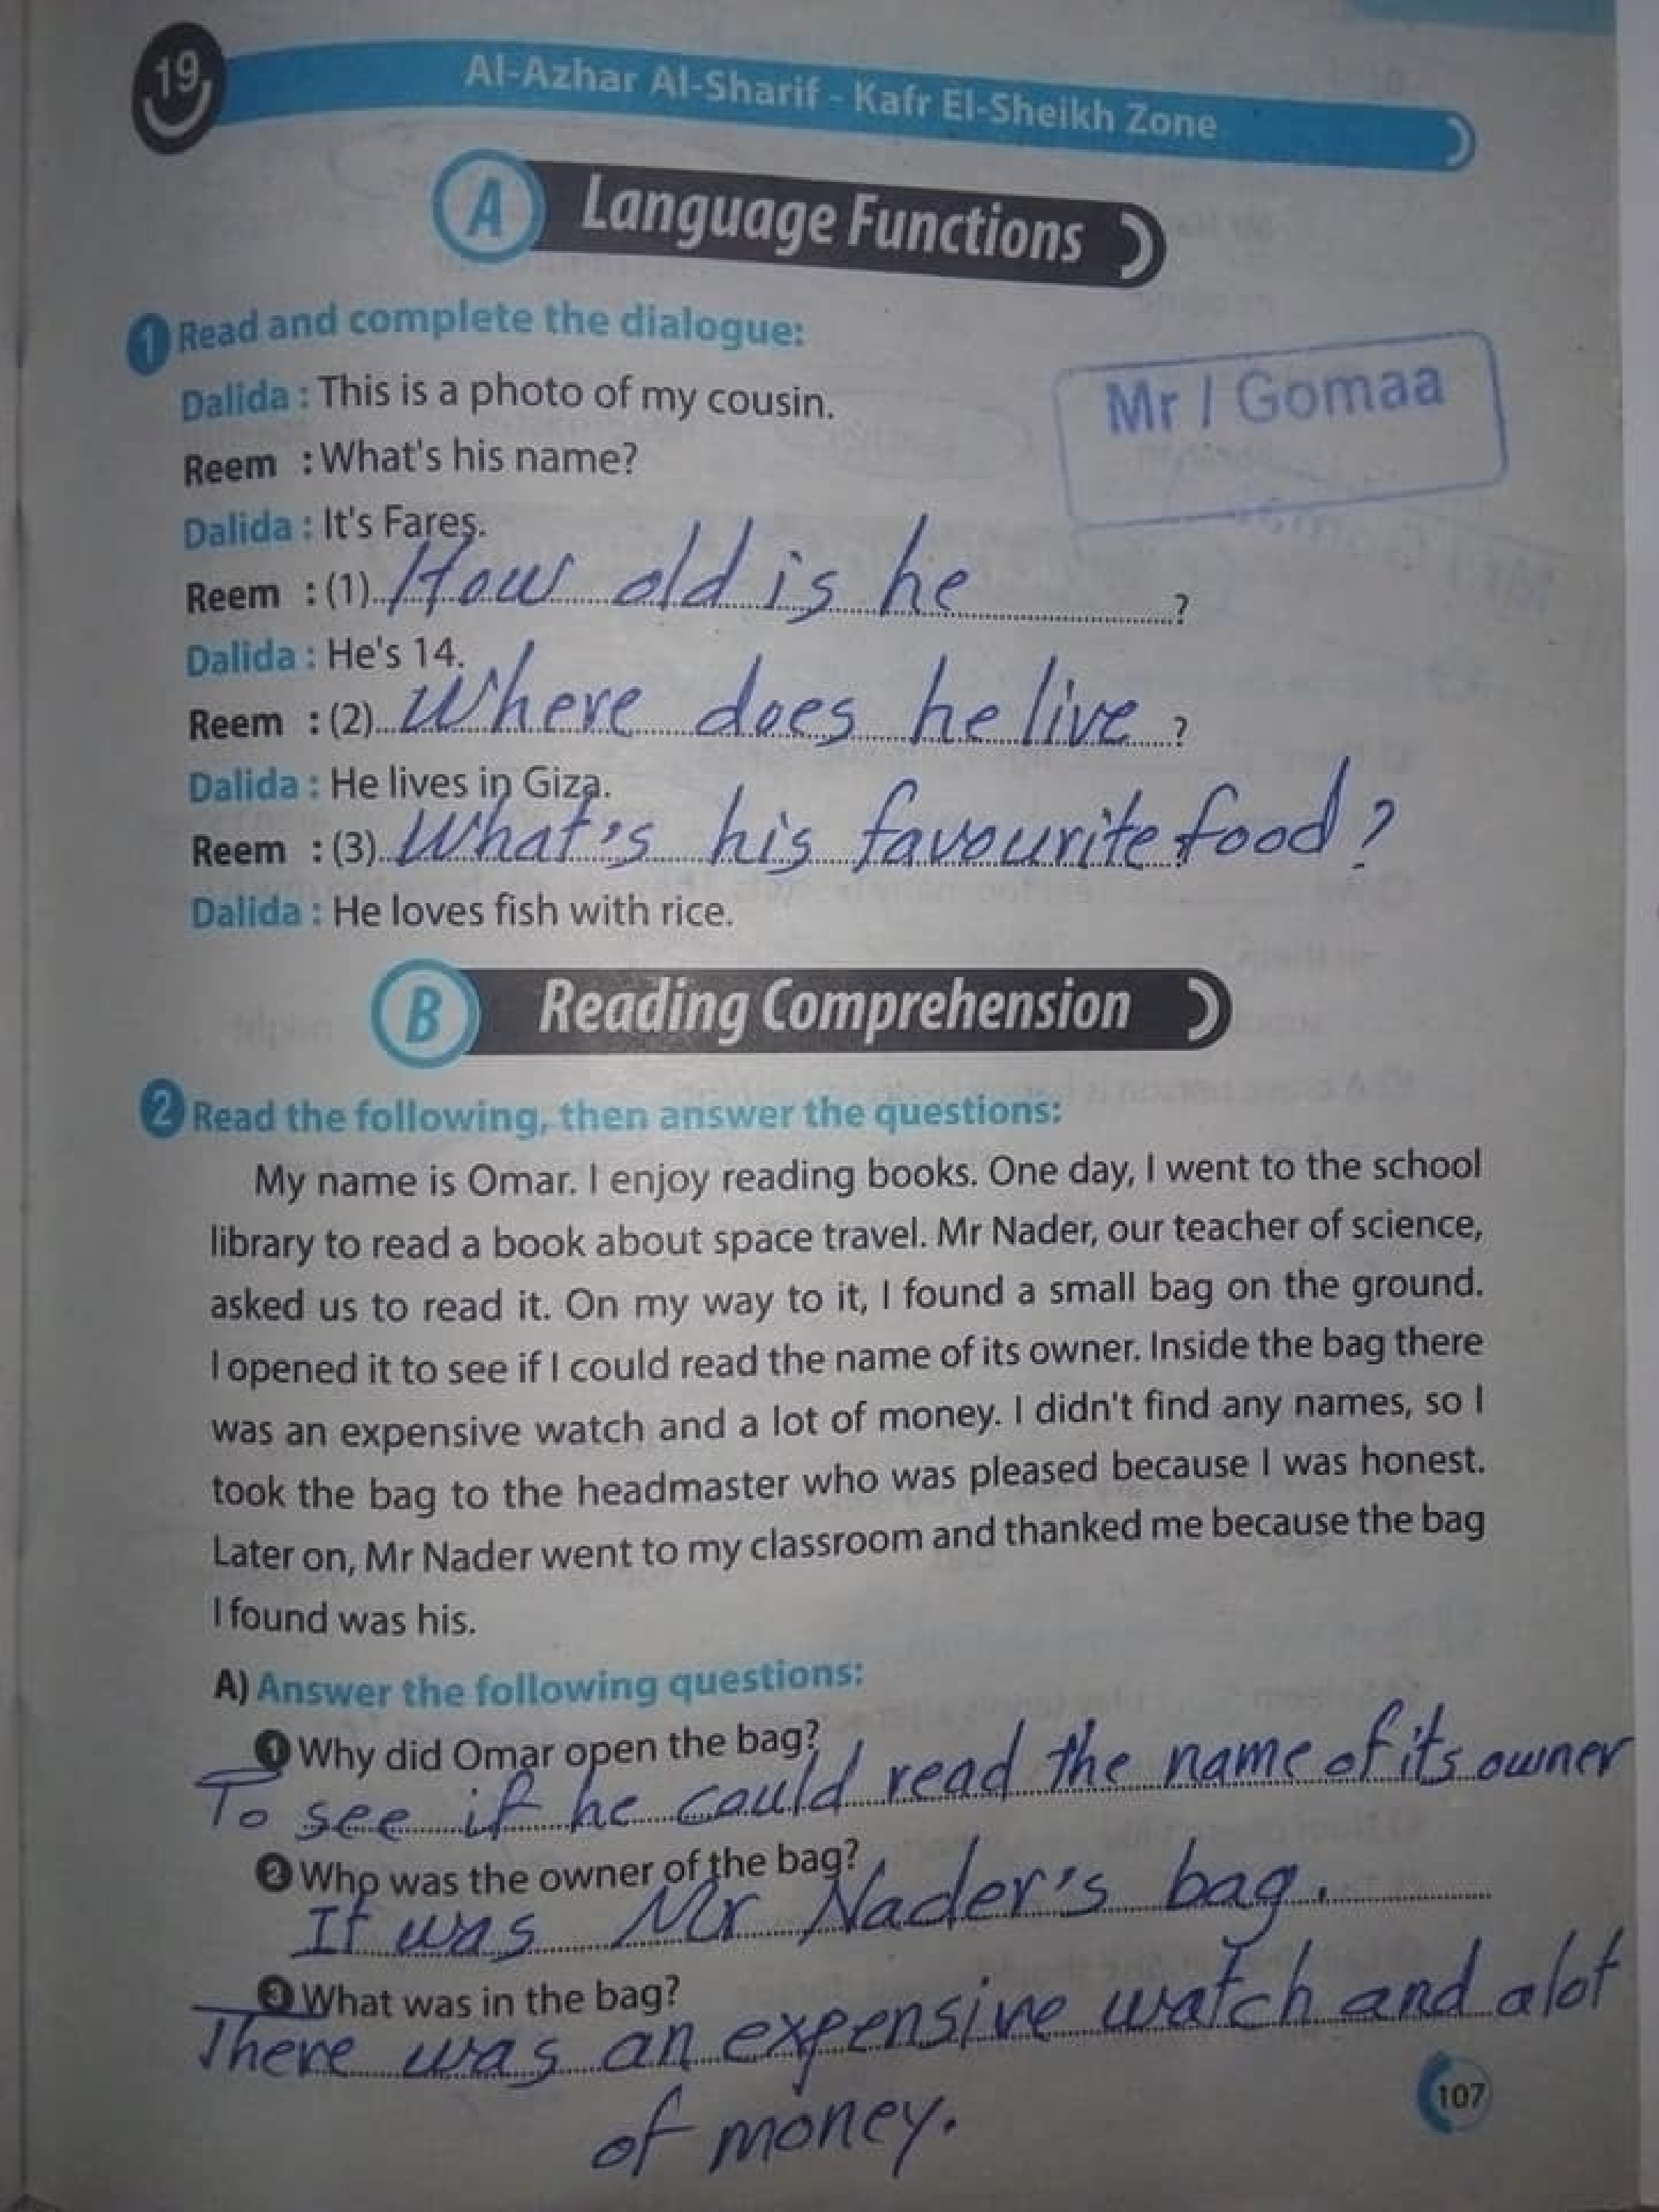 19
Al-Azhar Al-Sharif - Kafr El-Sheikh Zone
A Language Functions
1 Read and complete the dialogue:
Mr / Gomaa
Dalida : This is a photo of my cousin.
Reem : What's his name?
Dalida : It's Fares.
Reem : (1) How old is he ?
Dalida : He's 14.
Reem : (2) Where does he live ?
Dalida : He lives in Giza.
Reem : (3) What's his favourite food ?
Dalida : He loves fish with rice.
B Reading Comprehension
2 Read the following, then answer the questions:
My name is Omar. I enjoy reading books. One day, I went to the school
library to read a book about space travel. Mr Nader, our teacher of science,
asked us to read it. On my way to it, I found a small bag on the ground.
I opened it to see if I could read the name of its owner. Inside the bag there
was an expensive watch and a lot of money. I didn't find any names, so I
took the bag to the headmaster who was pleased because I was honest.
Later on, Mr Nader went to my classroom and thanked me because the bag
I found was his.
A) Answer the following questions:
1 Why did Omar open the bag?
To see if he could read the name of its owner
2 Who was the owner of the bag?
It was Mr Nader's bag.
3 What was in the bag?
There was an expensive watch and alot
of money.
107